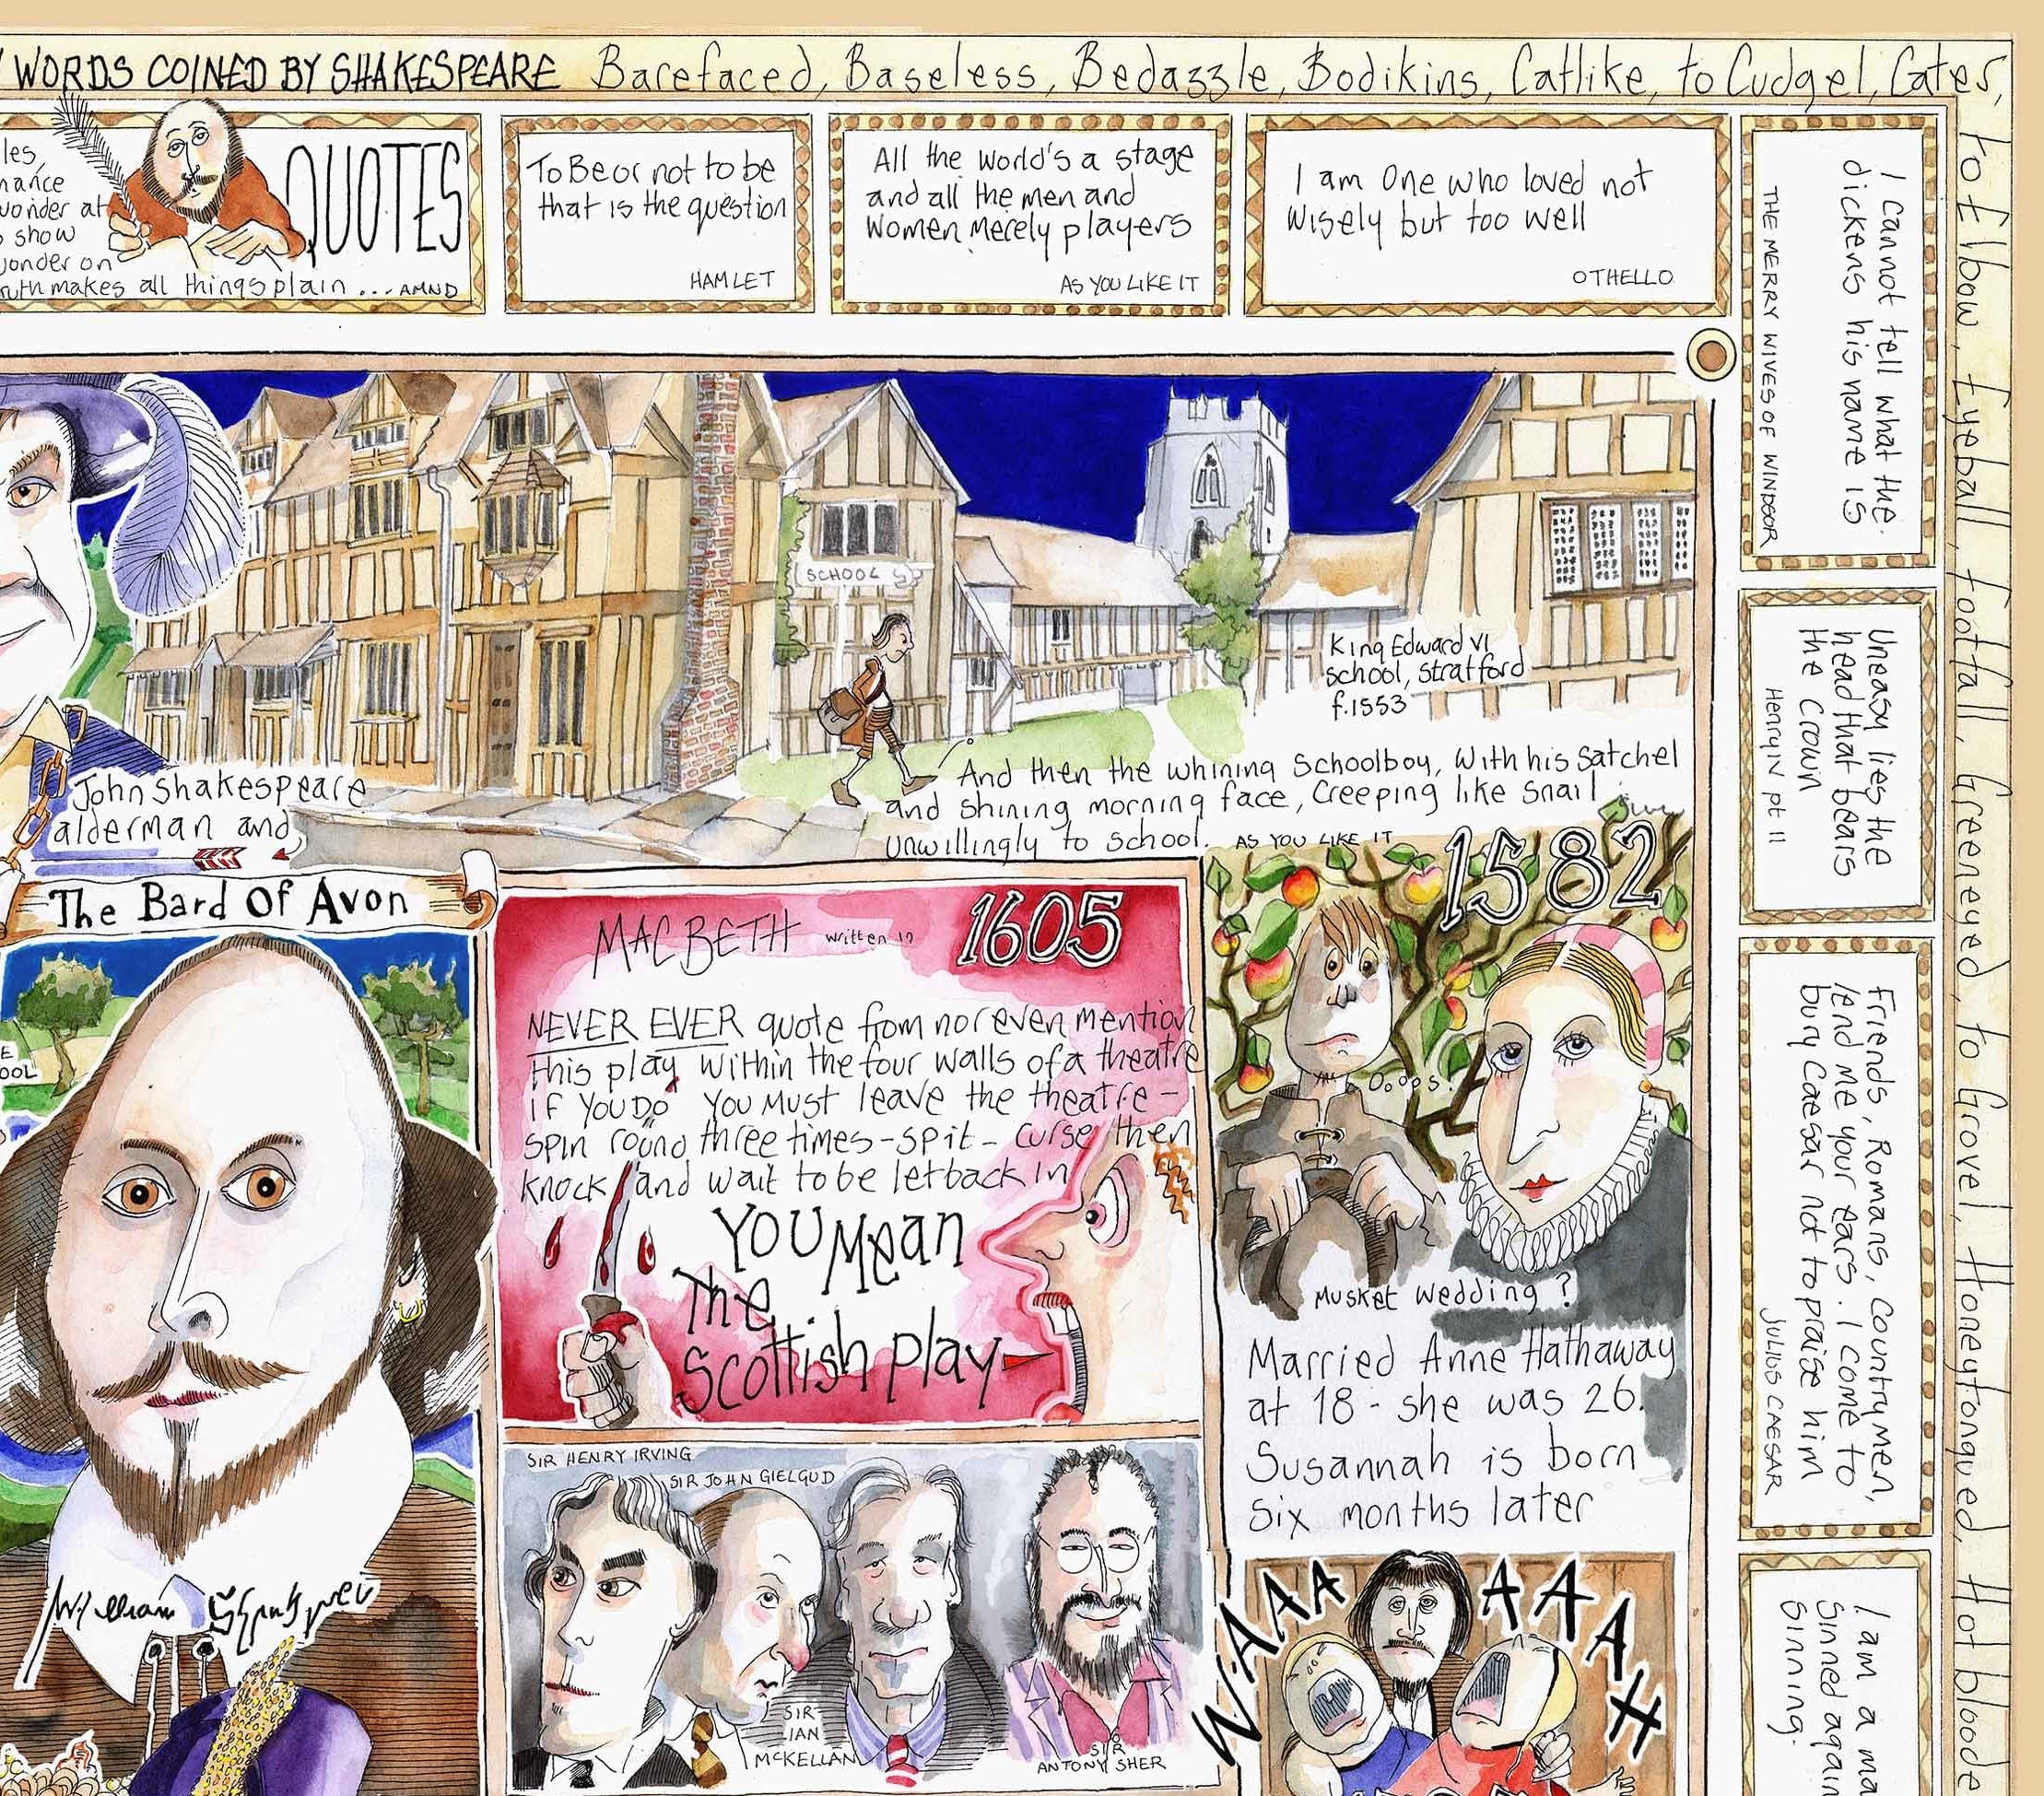 WORDS COINED BY SHAKESPEARE Barefaced, Baseless, Bedazzle, Bodikins, Catlike, to Cudgel, Cates,
to Elbow, Eyeball, Footfall, Greeneyed, to Grovel, Honeytongued, Hot bloode
les,
nance
wonder at
show
wonder on
ruth makes all things plain ... AMND
QUOTES
To Be or not to be
that is the question
HAMLET
All the world's a stage
and all the men and
women merely players
AS YOU LIKE IT
I am One who loved not
wisely but too well
OTHELLO
I cannot tell what the
dickens his name is
THE MERRY WIVES OF WINDSOR
Uneasy lies the
head that bears
the Crown
Henry IV pt 11
Friends, Romans, Countrymen,
lend me your ears. I come to
bury Caesar not to praise him
JULIUS CAESAR
I am a ma
sinned again
sinning.
SCHOOL
King Edward VI
School, Stratford
f.1553
And then the whining Schoolboy, With his Satchel
and shining morning face, Creeping like Snail
Unwillingly to school. AS YOU LIKE IT
John Shakespeare
alderman and
The Bard Of Avon
E
OOL
William
MACBETH written in 1605
NEVER EVER quote from nor even mention
this play within the four walls of a theatre
If YOU DO YOU MUST leave the theatre -
spin round three times - spit - curse then
knock and wait to be let back in
YOU Mean
The
Scottish play
1582
Ooops!
Musket wedding ?
Married Anne Hathaway
at 18 - she was 26.
Susannah is born
six months later
SIR HENRY IRVING
SIR JOHN GIELGUD
SIR
IAN
McKELLAN
SIR
ANTONY SHER
WAAAA AAAAH